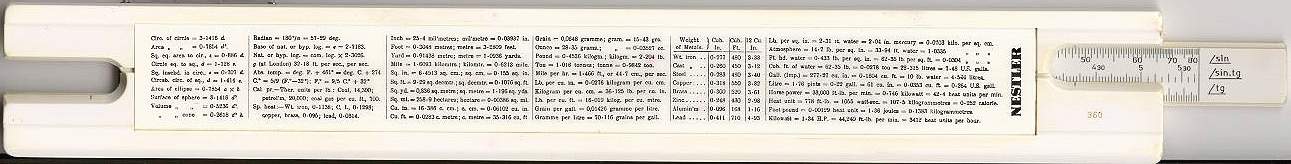 Circ. of circle = 3·1416 d.
Area „ „ = 0·7854 d².
Sq. equ. area to cir., s = 0·886 d.
Circle eq. to sq., d = 1·128 s.
Sq. inscbd. in circ., s = 0·707 d.
Circsb. circ. of sq., d = 1·414 s.
Area of ellipse = 0·7854 a × b
Surface of sphere = 3·1416 d².
Volume „ „ = 0·5236 d³.
„ „ cone = 0·2618 d² h
Radian = 180°/π = 57·29 deg.
Base of nat. or hyp. log. = e = 2·7183.
Nat. or hyp. log. = com. log × 2·3026.
g (at London) 32·18 ft. per sec., per sec.
Abs. temp. = deg. F. + 461° = deg. C. + 274
C.° = 5/9 (F.°—32°); F.° = 9/5 C.° + 32°
Cal. pr.—Ther. units per lb.: Coal, 14,300;
petrol'm, 20,000; coal gas per cu. ft., 700.
Sp. heat—Wt. iron, 0·1138; C. I., 0·1298;
copper, brass, 0·095; lead, 0·0314.
Inch = 25·4 milimetres; milimetre = 0·03937 in.
Foot = 0·3048 metres; metre = 3·2809 feet.
Yard = 0·91438 metre; metre = 1·0936 yards.
Mile = 1·6093 kilometrs; kilometr. = 0·6213 mile.
Sq. in. = 6·4513 sq. cm.; sq. cm. = 0·155 sq. in.
Sq. ft. = 9·29 sq. decmtr.; sq. decmtr. = 0·1076 sq. ft.
Sq. yd. = 0,836 sq. metre; sq. metre = 1·196 sq. yds.
Sq. ml. = 258·9 hectares; hectare = 0·00386 sq. ml.
Cu. in. = 16·386 c. cm.; c. cm. = 0·06102 cu. in.
Cu. ft. = 0·0283 c. metre; c. metre = 35·316 cu. ft
Grain = 0,0648 gramme; gram. = 15·43 grs.
Ounce = 28·35 grams.; „ = 0·03527 oz.
Pound = 0·4536 kilogm.; kilogm. = 2·204 lb.
Ton = 1·016 tonnes; tonne = 0·9842 ton.
Mile per hr. = 1·466 ft., or 44·7 cm., per sec.
Lb. per cu. in. = 0·0276 kilogram per cu. cm.
Kilogram per cu. cm. = 36·125 lb. per cu. in.
Lb. per cu. ft. = 16·019 kilog. per cu. metre.
Grain per gall. = 0,01426 gramme per litre.
Gramme per litre = 70·116 grains per gall.
Weight of Metals. Cub. In. Cub. Ft. 12 Cu In.
Wt. iron .. 0·277 480 3·33
Cast „ .. 0·260 450 3·12
Steel ...... 0·283 490 3·40
Copper .... 0·318 550 3·82
Brass ..... 0·300 520 3·61
Zinc ...... 0·248 430 2·98
Aluminium 0·096 168 1·16
Lead ..... 0·411 710 4·93
Lb. per sq. in. = 2·31 ft. water = 2·04 in. mercury = 0·0703 kilo. per sq. cm.
Atmosphere = 14·7 lb. per sq. in. = 33·94 ft. water = 1·0335 „ „ „
Ft. hd. water = 0·433 lb. per sq. in. = 62·35 lb. per sq. ft. = 0·0304 „ „ „
Cub. ft. of water = 62·35 lb. = 0·0278 ton = 28·315 litres = 7·48 U.S. galls.
Gall. (Imp.) = 277·27 cu. in. = 0·1604 cu. ft. = 10 lb. water = 4·546 litres.
Litre = 1·76 pints = 0·22 gall. = 61 cu. in. = 0·0353 cu. ft. = 0·264 U.S. gall.
Horse power = 33,000 ft-lb. per min. = 0·746 kilowatt = 42·4 heat units per min.
Heat unit = 778 ft-lb. = 1055 watt-sec. = 107·5 kilogrammetres = 0·252 calorie.
Foot pound = 0·00129 heat unit = 1·36 joules
Kilowatt = 1·34 H.P. = 44,240 ft-lb. per min. = 3412 heat units per hour.
NESTLER
360
50 60 70 80
430 5 530
/sin
/sin.tg
/tg